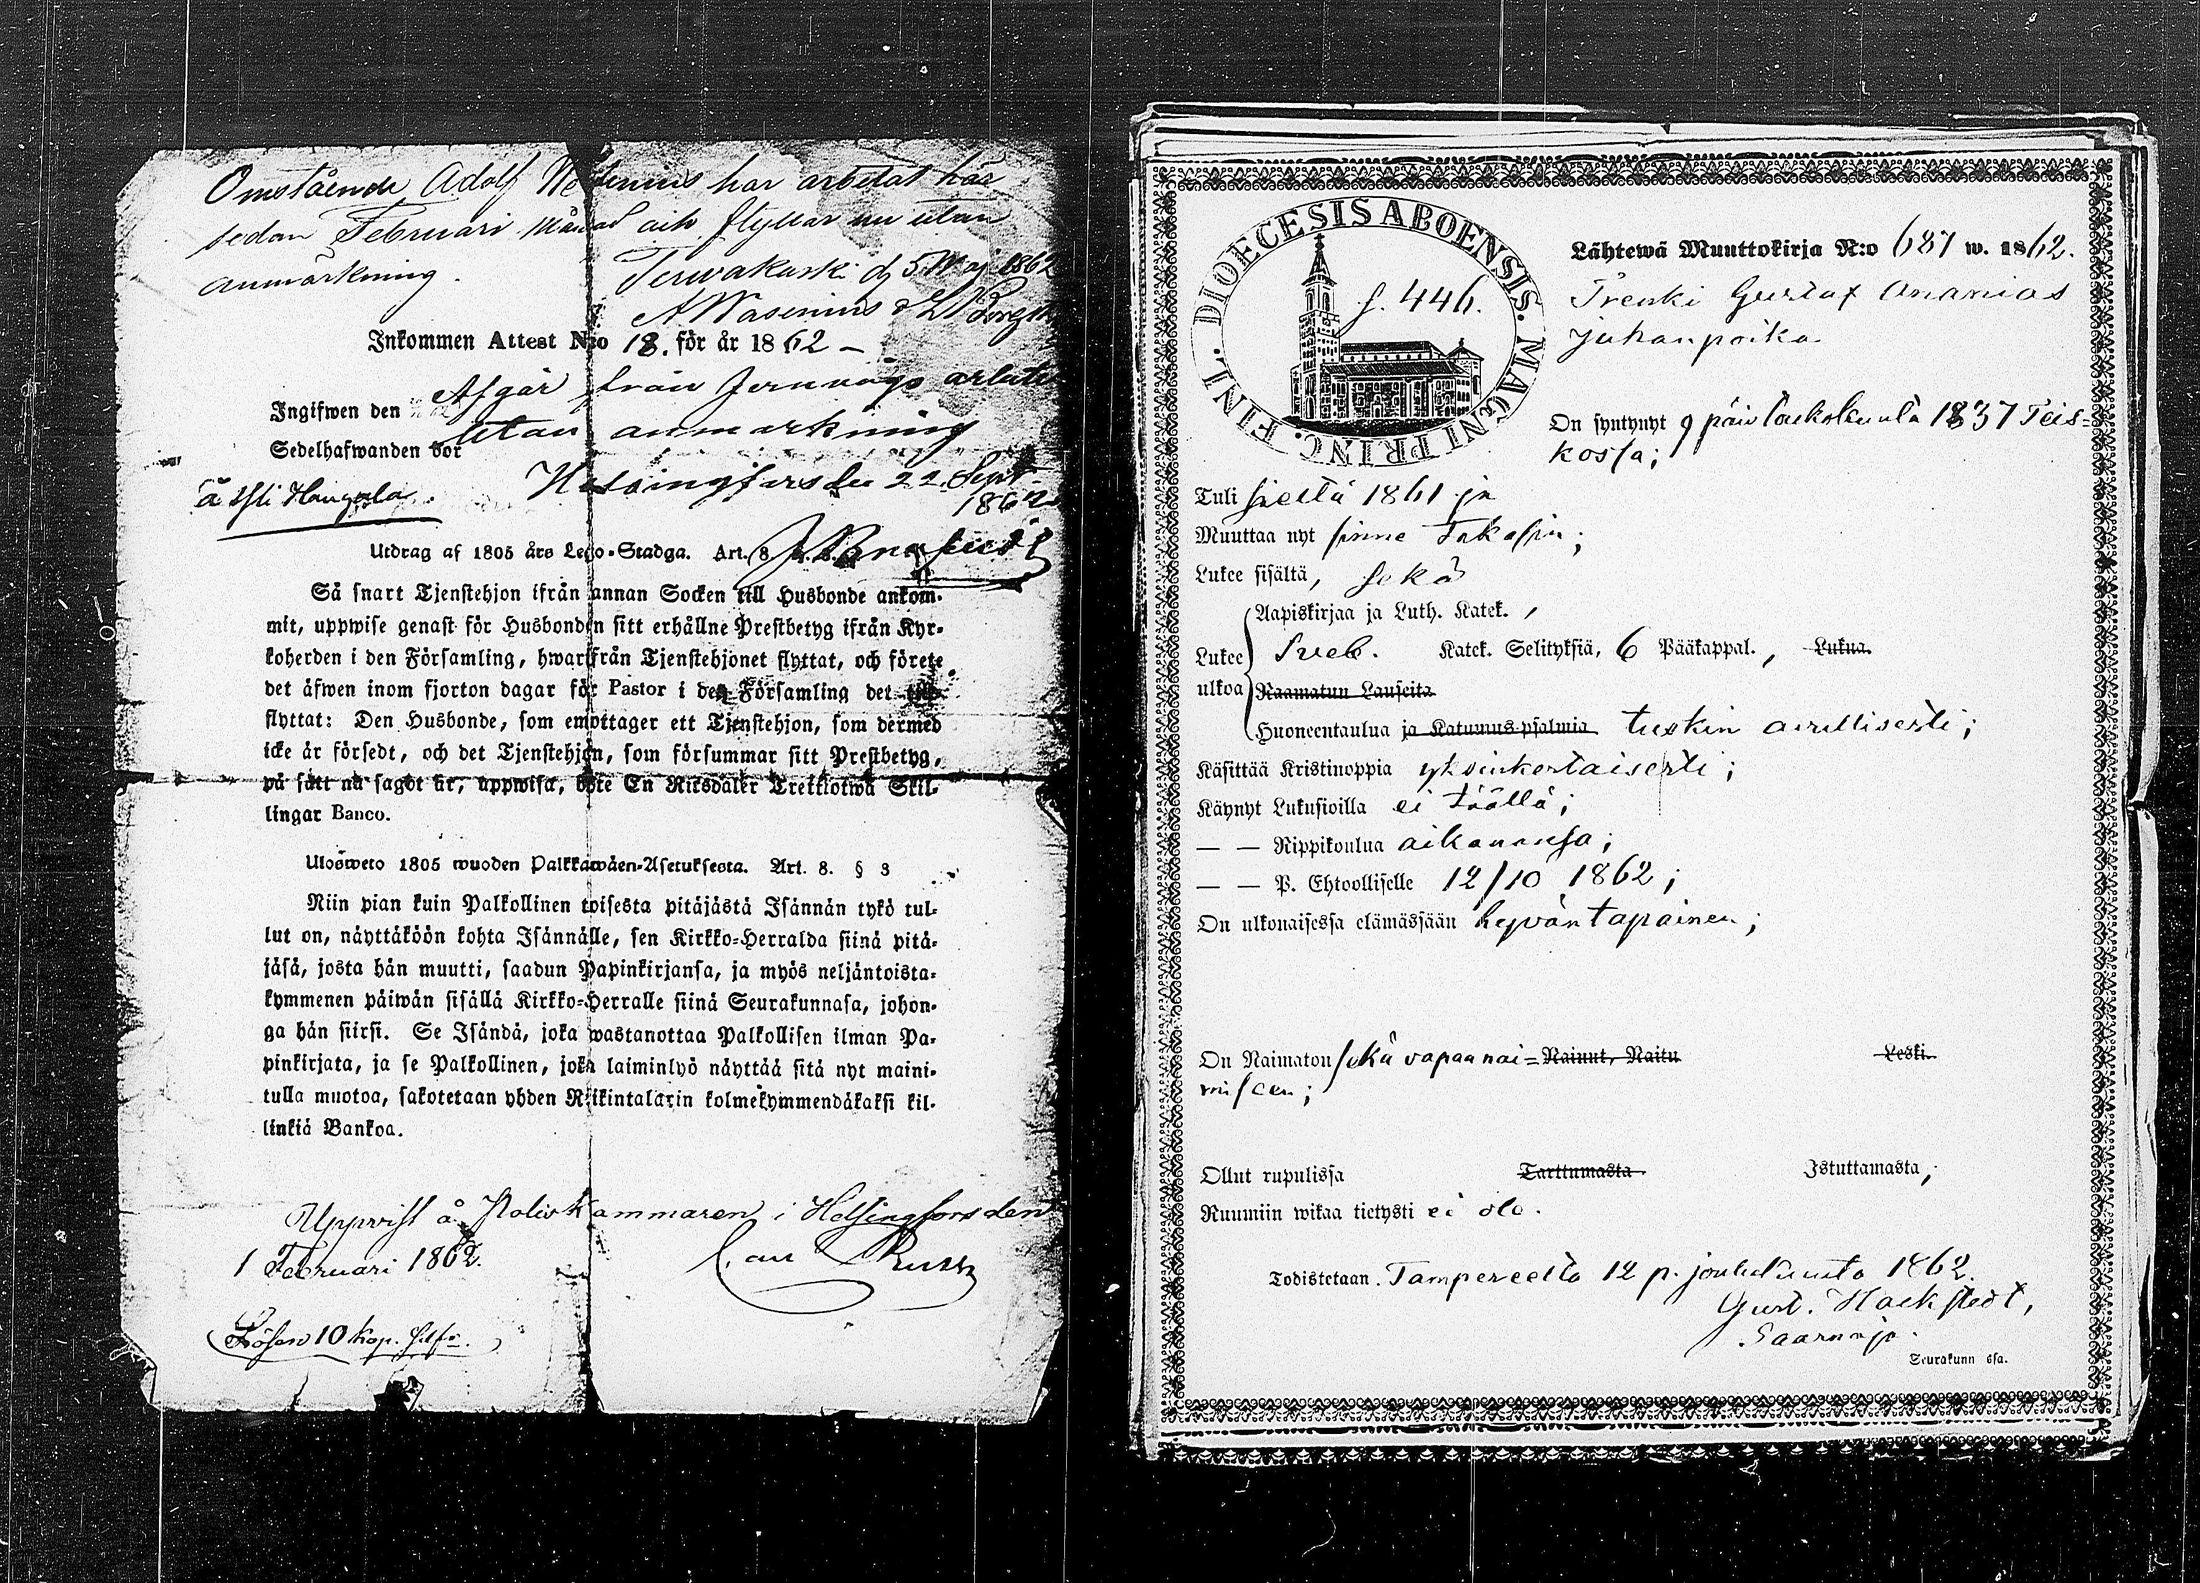 Omstående Adolf har arbetat här
sedan Februari Månad och flyttar nu utan
anmärkning.
Terwakoski d 5 Maj 1862
Inkommen Attest N:o 18. för år 1862 –
Afgår från Jernvägs arbetet
Ingifwen den
utan anmärkning
Sedelhafwanden bor
Helsingfors den 22 Sept. 1862
å
Utdrag af 1805 års Lego-Stadga. Art. 8
Så snart Tjenstehjon ifrån annan Socken till Husbonde ankom-
mit, uppwise genast för Husbonden sitt erhållne Prestbetyg ifrån Kyr-
koherden i den Församling, hwarifrån Tjenstehjonet flyttat, och förete
det äfwen inom fjorton dagar för Pastor i den Församling det till-
flyttat: Den Husbonde, som emottager ett Tjenstehjon, som dermed
icke är försedt, och det Tjenstehjon, som försummar sitt Prestbetyg,
på sätt nu sagdt är, uppwisa, böte En Riksdaler Trettiotwå Skil-
lingar Banco.
Ulosweto 1805 wuoden Palkkawäen-Asetuksesta. Art. 8. § 3
Niin pian kuin Palkollinen toisesta pitäjästä Isännän tykö tul-
lut on, näyttäköön kohta Isännälle, sen Kirkko-Herralda siinä pitä-
jäsä, josta hän muutti, saadun Papinkirjansa, ja myös neljäntoista-
kymmenen päiwän sisällä Kirkko-Herralle siinä Seurakunnasa, johon-
ga hän siirsi. Se Isändä, joka wastanottaa Palkollisen ilman Pa-
pinkirjata, ja se Palkollinen, joka laiminlyö näyttää sitä nyt maini-
tulla muotoa, sakotetaan yhden Riikintalarin kolmekymmendäkaksi kil-
linkiä Bankoa.
Uppvist å Poliskammaren i Helsingfors den
1 Februari 1862.
Lösen 10 kop. silfr.
DIOECESIS ABOENSIS. MAGNI PRINC. FINL.
s. 446.
Lähtewä Muuttokirja N:o 687 w. 1862.
Trenki Gustaf Ananias
Juhanpoika
On syntynyt 9 päiv toukokuuta 1837 Teis-
kossa;
Tuli sieltä 1861 ja
Muuttaa nyt sinne takasin;
Lukee sisältä, sekä
Aapiskirjaa ja Luth. Katek. ,
Lukee Sveb. Katek. Selityksiä, 6 Pääkappal., Lukua.
ulkoa Raamatun Lauseita
Huoneentaulua ja Katumus-psalmia tuskin avullisesti;
Käsittää Kristinoppia yksinkertaisesti;
Käynyt Lukusioilla ei täällä;
— — Rippikoulua aikanansa;
— — P. Ehtoolliselle 12/10 1862;
On ulkonaisessa elämässään hyväntapainen;
On Naimaton sekä vapaa nai= Nainut, Naitu Leski.
miseen;
Ollut rupulissa Tarttumasta. Istuttamasta,
Ruumiin wikaa tietysti ei ole.
Todistetaan. Tampereelta 12 p. joulukuuta 1862.
Gust. Hackstedt,
Saarnaja.
Seurakunn ssa.